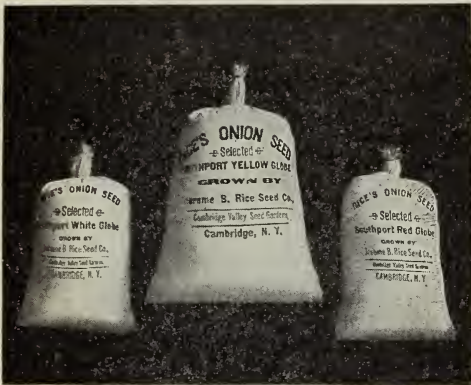 RICE'S ONION SEED
Selected
Southport White Globe
GROWN BY
Jerome B. Rice Seed Co.,
Cambridge Valley Seed Gardens,
CAMBRIDGE, N. Y.
RICE'S ONION SEED
Selected
SOUTHPORT YELLOW GLOBE
GROWN BY
Jerome B. Rice Seed Co.,
Cambridge Valley Seed Gardens,
Cambridge, N. Y.
RICE'S ONION SEED
Selected
Southport Red Globe
GROWN BY
Jerome B. Rice Seed Co.,
Cambridge Valley Seed Gardens
CAMBRIDGE, N. Y.